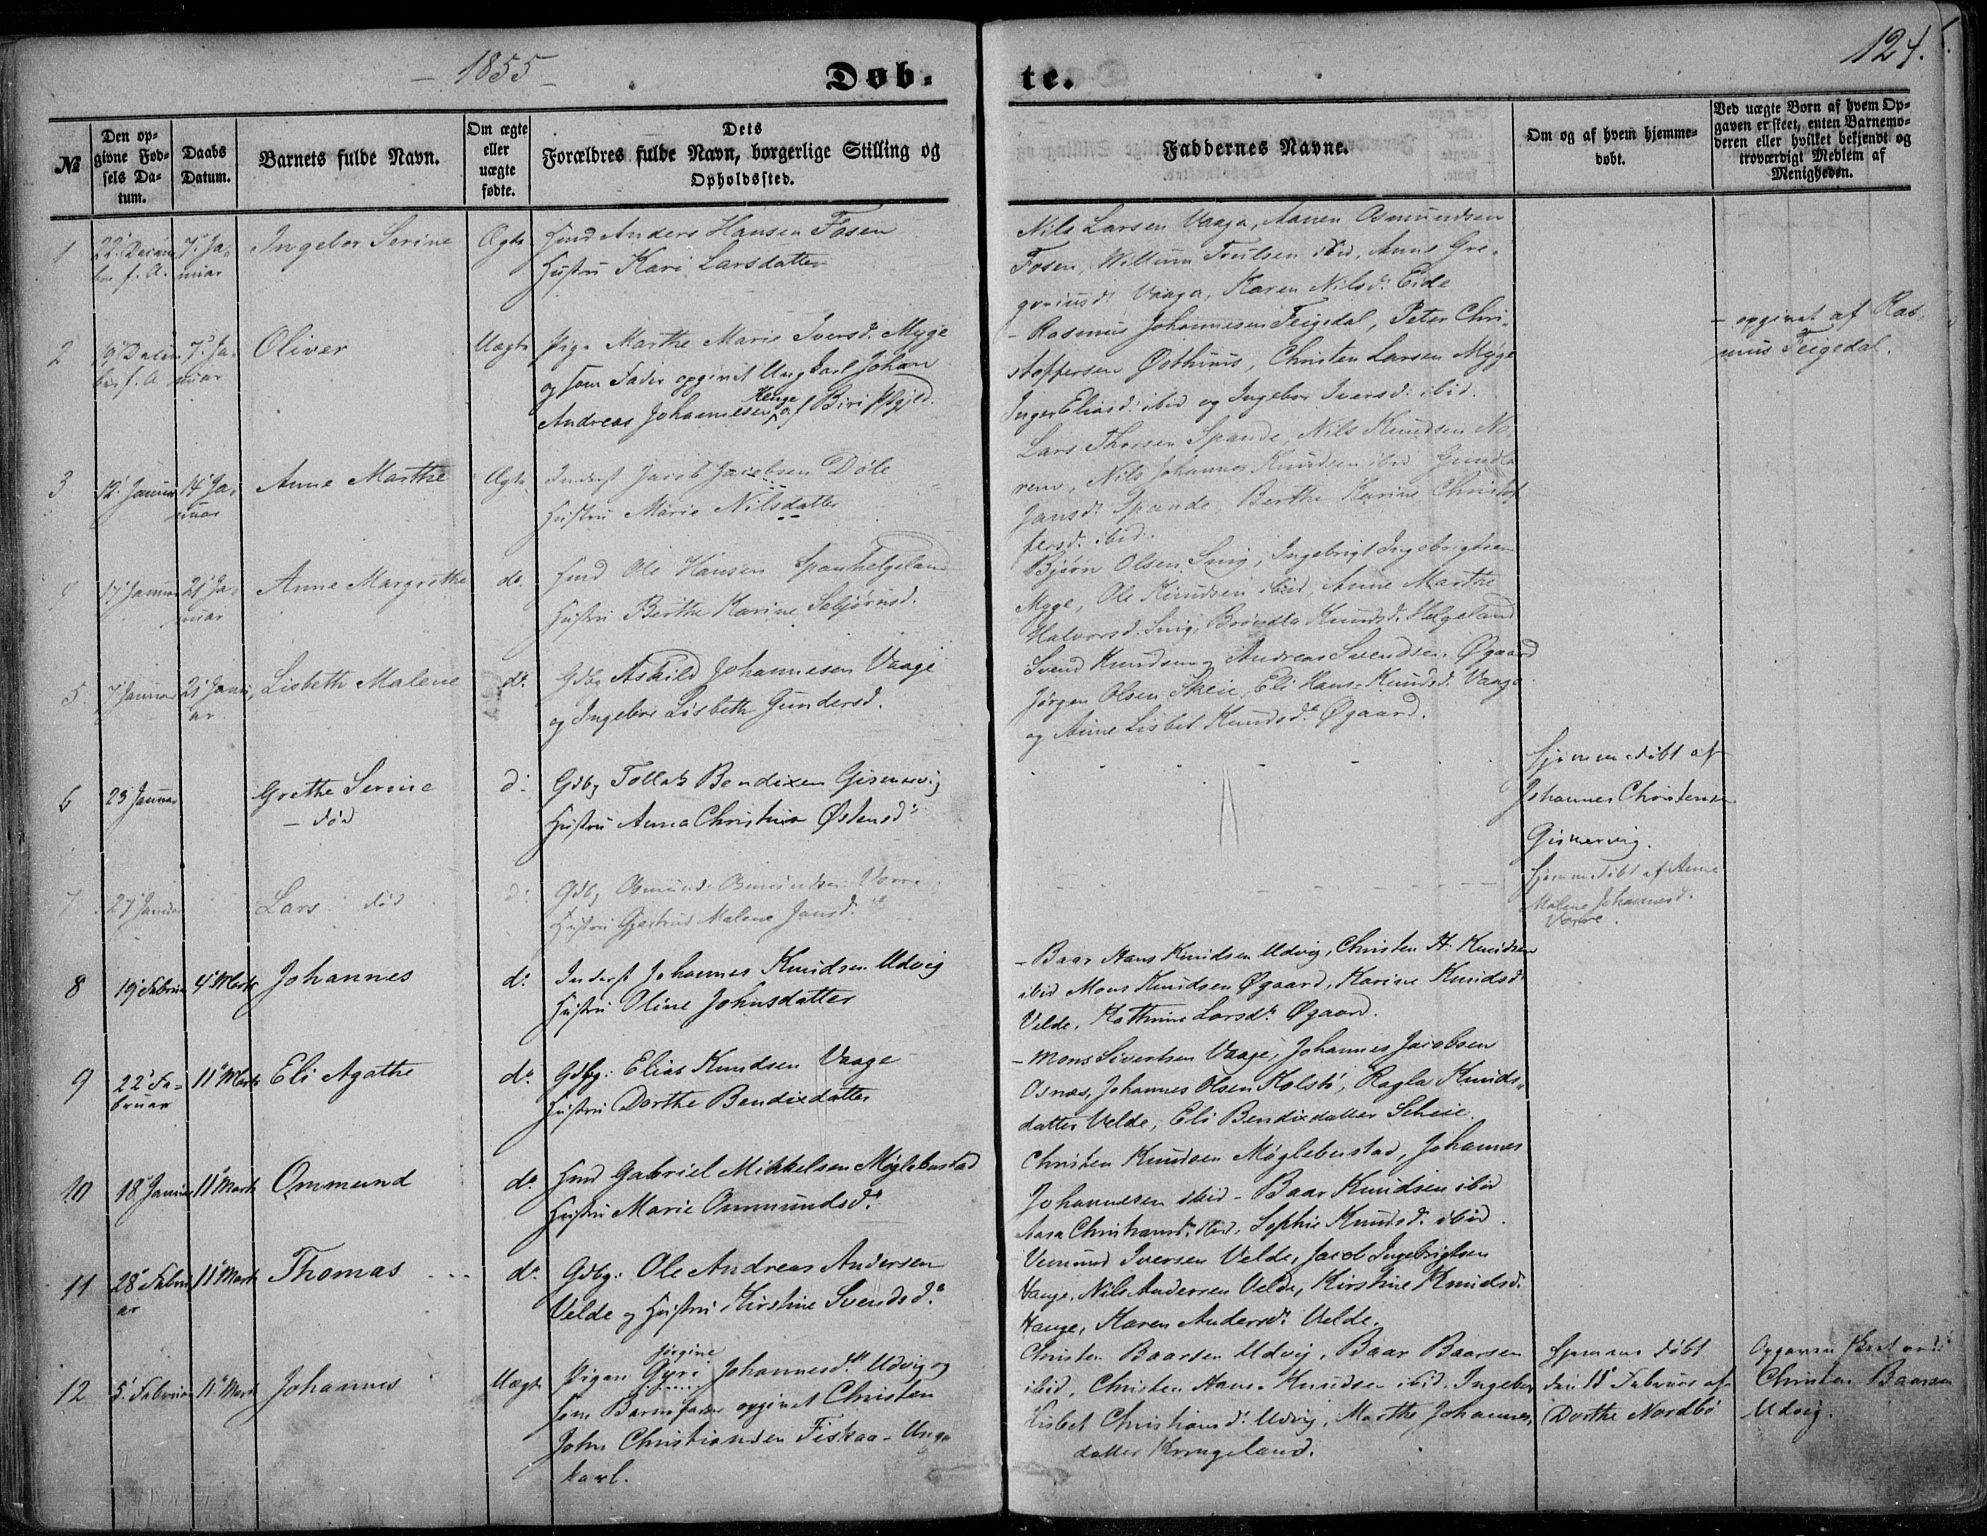 - 1855 -
Døb-
te.
124.
№
Den op-
givne Fød-
sels Da-
tum.
Daabs
Datum.
Barnets fulde Navn.
Om ægte
eller
uægte
fødte.
Dets
Forældres fulde Navn, borgerlige Stilling og
Opholdssted.
Faddernes Navne.
Om og af hvem hjemme-
døbt.
Ved uægte Børn af hvem Op-
gaven er skeet, enten Barnemo-
deren eller hvilket bekjendt og
troværdigt Medlem af
Menigheden.
1
22. Decem
ber f. A.
7. Ja-
nuar
Ingebor Serine
Ægte
Anders Hansen Fosen
Hustru Kari Larsdatter
Nils Larsen Vaaga, Aanen Osmundsen
Fosen, Willum Trulsen ibid, Anne Gre-
goriusd. Vaaga, Karen Nilsd. Eide
2
7. Ja-
nuar
Oliver
Uægte
Pige Marthe Marie Iversd. Myge
og som Fader opgivet Ungkarl Johan
Andreas Johannesen af Biri Pgjld.
- Rasmus Johannesen Teigedal, Peter Chri-
stoffersen Østhuus, Christen Larsen Myge
Inger Eliasd. ibid og Ingebor Iversd. ibid.
- opgivet af Ras-
mus Teigedal.
3
12. Januar
14. Ja-
nuar
Anne Marthe
Ægte
Inderst Jacob Jacobsen Døle
Hustru Marie Nilsdatter
Lars Thorsen Spande, Nils Knudsen No-
rem, Nils Johannes Knudsen ibid
Jansd. Spande, Berthe Karine Christof-
fersd. ibid.
17. Januar
21. Ja-
nuar
Anne Margrethe
do.
Ole Hansen Spanhelgeland
Hustru Berthe Karine Sebjørnsd.
Bjørn Olsen Snig, Ingebrigt Ingebrigtsen
Myge, Ole Knudsen ibid, Anne Marthe
Halvorsd. Snig, Brønla Knudsd. Helgeland
5
7. Januar
21. Janu-
ar
Lisbeth Malene
do.
Gdbg Askild Johannesen Vaage
og Ingebor Lisbeth Gundersd.
Svend Knudsen, Andreas Svendsen Øgaard
Jørgen Olsen Skeie, Eli Hans-Knudsd. Vaage
og Anne Lisbet Knudsd. Øgaard.
6
23 Januar
Grethe Serine
- død
d:
Gdbg Tollak Bendixen Gismervig
Hustru Anna Christine Østensd:
Hjemmedøbt af
Johannes Christensen
Gismervig.
7
27 Januar
Lars død
d:
Gdbg Osmund Osmundsen Vorre
Hustru Gjertrud Malene Jansd.
Hjemmedøbt af Anne
Malene Johannesd.
Vorre.
8
19. Februar
4. Marts
Johannes
d.
Inderst Johannes Knudsen Udvig
Hustru Oline Johnsdatter
- Baar Hans Knudsen Udvig, Christen H. Knudsen
ibid Mons Knudsen Øgaard, Karine Knudsd.
Velde, Kathrine Larsd. Øgaard.
9
22. Fe-
bruar
11. Marts
Eli Agathe
do.
Gdbg: Elias Knudsen Vaage
Hustru Dorthe Bendixdatter
- Mons Sivertsen Vaage, Johannes Jacobsen
Osnæs, Johannes Olsen Kolstø, Ragla Knuds-
datter Velde, Eli Bendixdatter Scheie.
10
18. Januar
11. Marts
Ommund
do.
Gabriel Mikkelsen Møglebustad
Hustru Marie Ommundsd.
Christen Knudsen Møglebustad, Johannes
Johannesen ibid - Baar Knudsen ibid
Aasa Christiansd. ibid, Sophie Knudsd. ibid.
11
28. Febru
ar
11. Marts
Thomas
do.
Gdbg: Ole Andreas Andersen
Velde og Hustru Kirstine Svendsd.
Vemund Iversen Velde, Jacob Ingebrigtsen
Hauge, Nils Andersen Velde, Kirstine Knudsd.
Hauge, Karen Andersd. Velde.
12
5. Februar
11. Marts
Johannes
Uægte
Jørgine
Pigen Gyri Johannesd. Udvig og
som Barnefader opgivet Christen
John Christiansen Fiskaa - Ung-
karl.
Christen Baarsen Udvig, Baar Baarsen
ibid, Christen Hans Knudsen ibid, Ingebor
Lisbet Christiansd. Udvig, Marthe Johannes-
datter Kringeland.
Hjemme døbt
den 18 Februar af
Dorthe Nordbø
Opgaven skeet ved
Christen Baarsen
Udvig.